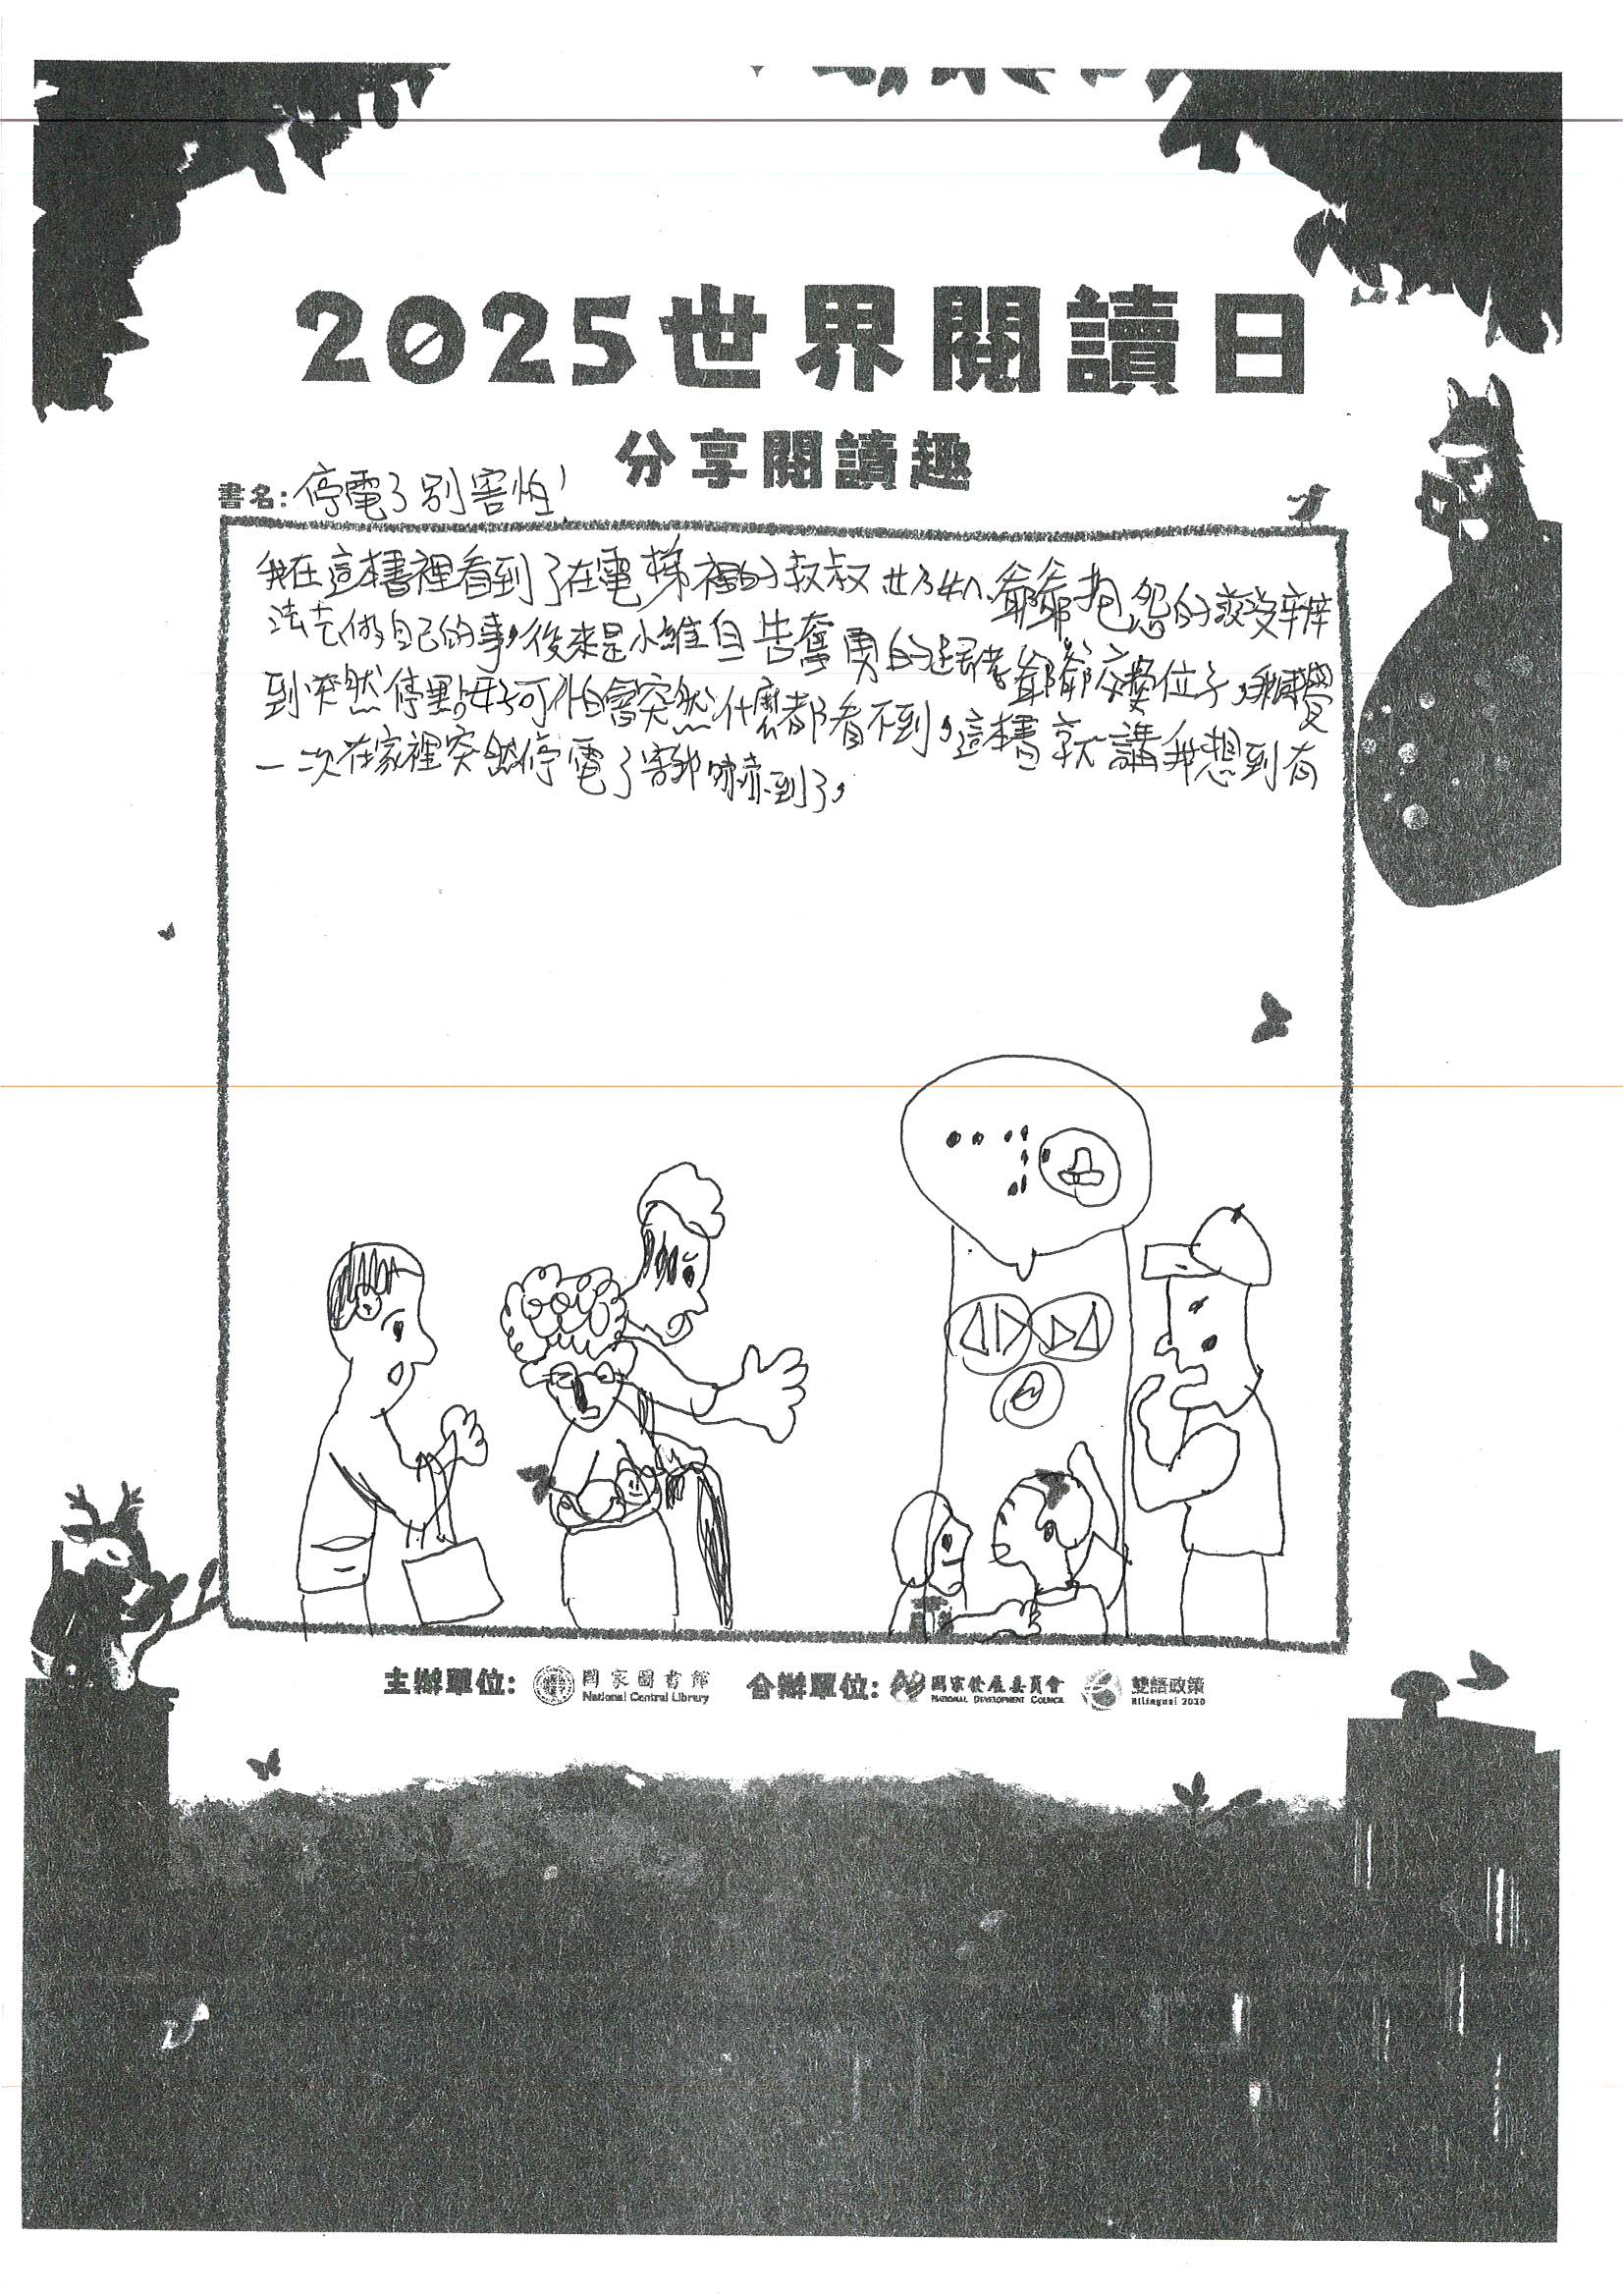 2025世界閱讀日
分享閱讀趣
書名:停電了別害怕!
我在這本書裡看到了在電梯裡的叔叔 爺爺抱怨的說沒辦
法去做自己的事,後來是小維自告奮勇的跟爺爺交換位子,我感覺
到突然停點好可怕會突然什麼都看不到,這本書就講我想到有
一次在家裡突然停電了害我嚇到了,
主辦單位: 國家圖書館 National Central Library 合辦單位: 國家發展委員會 National Development Council 雙語政策 Bilingual 2030